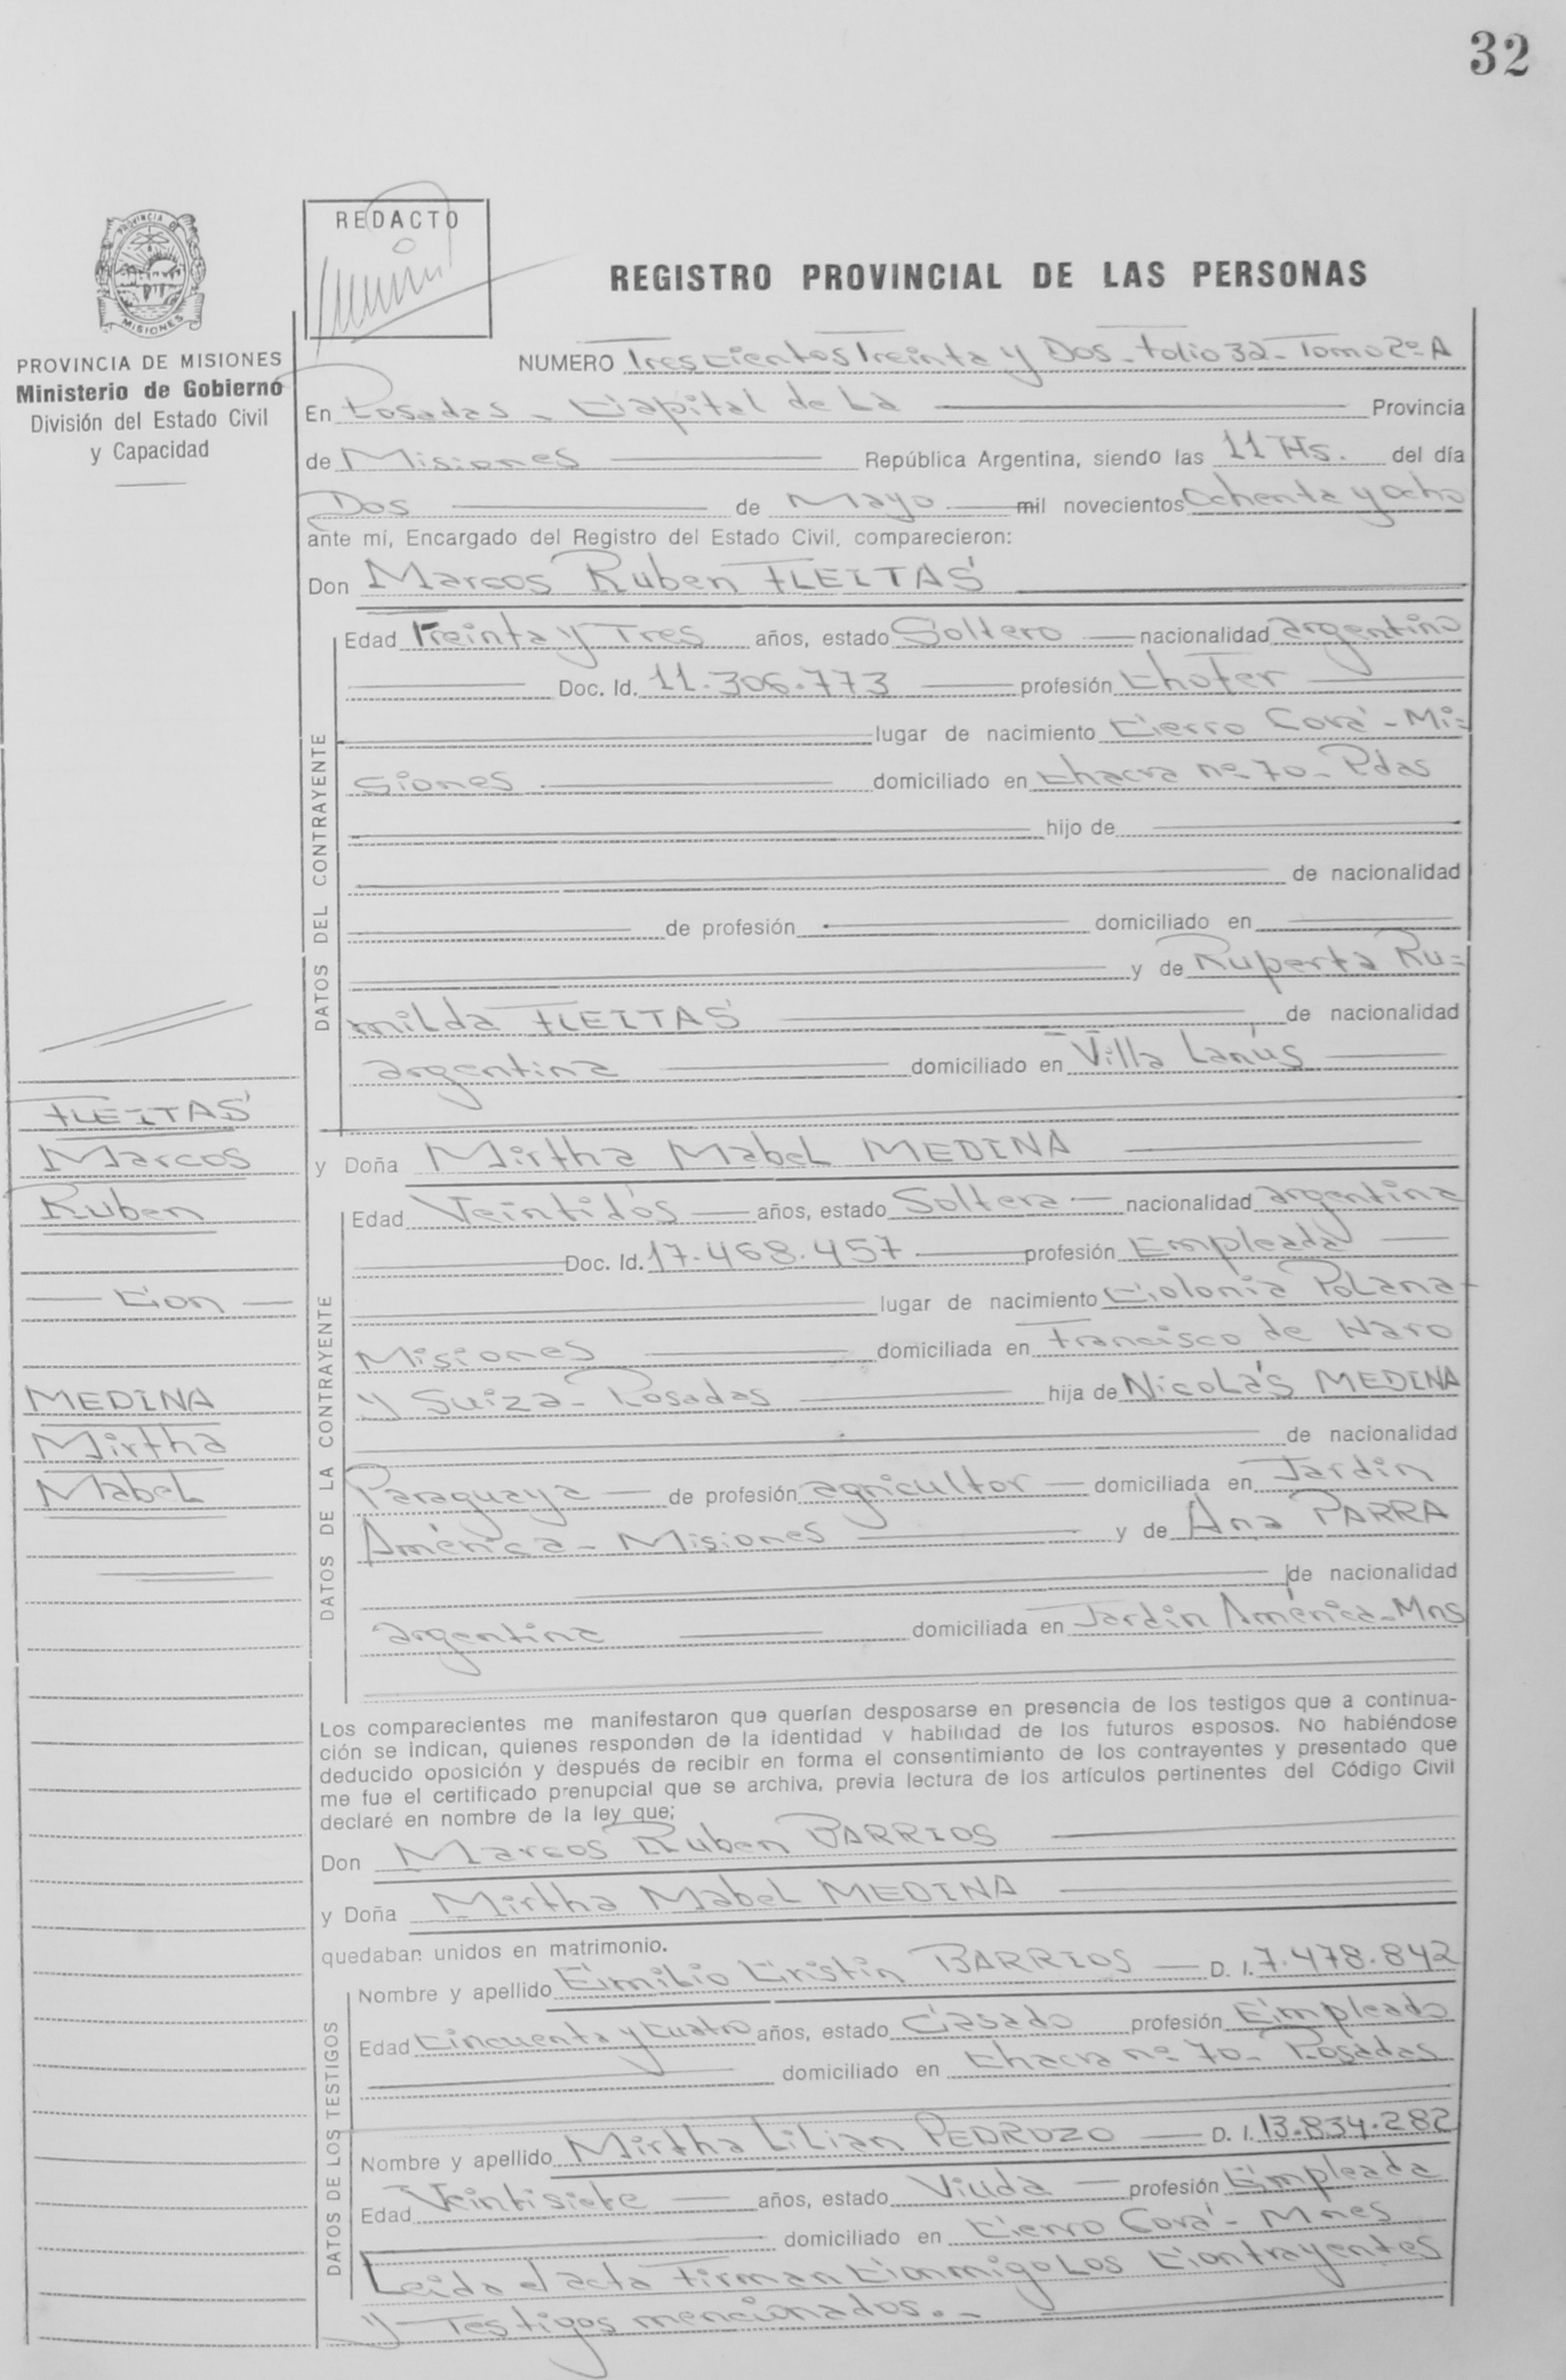 32
REDACTO
PROVINCIA DE
MISIONES
PROVINCIA DE MISIONES
Ministerio de Gobierno
División del Estado Civil
y Capacidad
REGISTRO PROVINCIAL DE LAS PERSONAS
NUMERO Trescientos Treinta y Dos - Folio 32 - Tomo 2º A
En Posadas - Capital de La Provincia
de Misiones República Argentina, siendo las 11 Hs. del día
Dos de Mayo mil novecientos Ochenta y ocho
ante mi, Encargado del Registro del Estado Civil, comparecieron:
Don Marcos Ruben FLEITAS
DATOS DEL CONTRAYENTE
Edad Treinta y Tres años, estado Soltero nacionalidad argentino
Doc. Id. 11.306.773 profesión Chofer
lugar de nacimiento Cerro Corá - Mi=
siones domiciliado en Chacra nº 70 - Pdas
hijo de
de nacionalidad
de profesión domiciliado en
y de Ruperta Ru=
milda FLEITAS de nacionalidad
argentina domiciliado en Villa Lanús
FLEITAS
Marcos
Ruben
Con
MEDINA
Mirtha
Mabel
y Doña Mirtha Mabel MEDINA
DATOS DE LA CONTRAYENTE
Edad Veintidós años, estado Soltera nacionalidad argentina
Doc. Id. 17.468.457 profesión Empleada
lugar de nacimiento Colonia Polana-
Misiones domiciliada en Francisco de Haro
y Suiza - Posadas hija de Nicolás MEDINA
de nacionalidad
Paraguaya de profesión agricultor domiciliada en Jardin
América - Misiones y de Ana PARRA
de nacionalidad
argentina domiciliada en Jardin América - Mns
Los comparecientes me manifestaron que querían desposarse en presencia de los testigos que a continua-
ción se indican, quienes responden de la identidad y habilidad de los futuros esposos. No habiéndose
deducido oposición y después de recibir en forma el consentimiento de los contrayentes y presentado que
me fue el certificado prenupcial que se archiva, previa lectura de los artículos pertinentes del Código Civil
declaré en nombre de la ley que;
Don Marcos Ruben BARRIOS
y Doña Mirtha Mabel MEDINA
quedaban unidos en matrimonio.
DATOS DE LOS TESTIGOS
Nombre y apellido Emilio Cristin BARRIOS D. I. 7.478.842
Edad Cincuenta y Cuatro años, estado Casado profesión Empleado
domiciliado en Chacra nº 70 - Posadas
Nombre y apellido Mirtha Lilian PEDROZO D. I. 13.834.282
Edad Veintisiete años, estado Viuda profesión Empleada
domiciliado en Cerro Corá - Mnes
Leida el acta Firman Conmigo Los Contrayentes
y Testigos mencionados.-